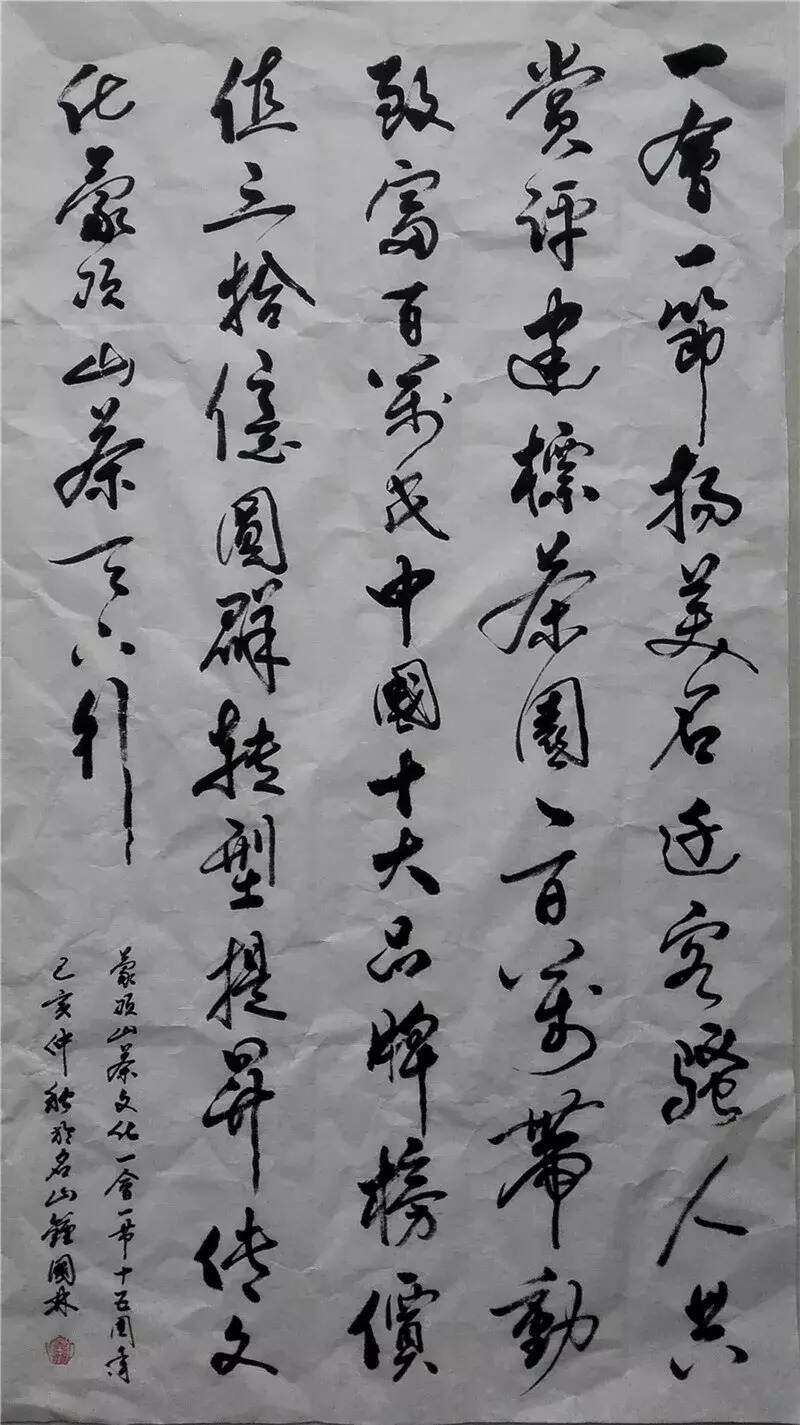 一會一節揚美名迁客騷人共
賞評建標茶園一百萬帶動
致富百萬民中國十大品牌榜價
值三拾億圓群转型提昇传文
化蒙顶山茶天下行
蒙顶山茶文化一會一节十五周年
己亥仲秋於名山鍾國林